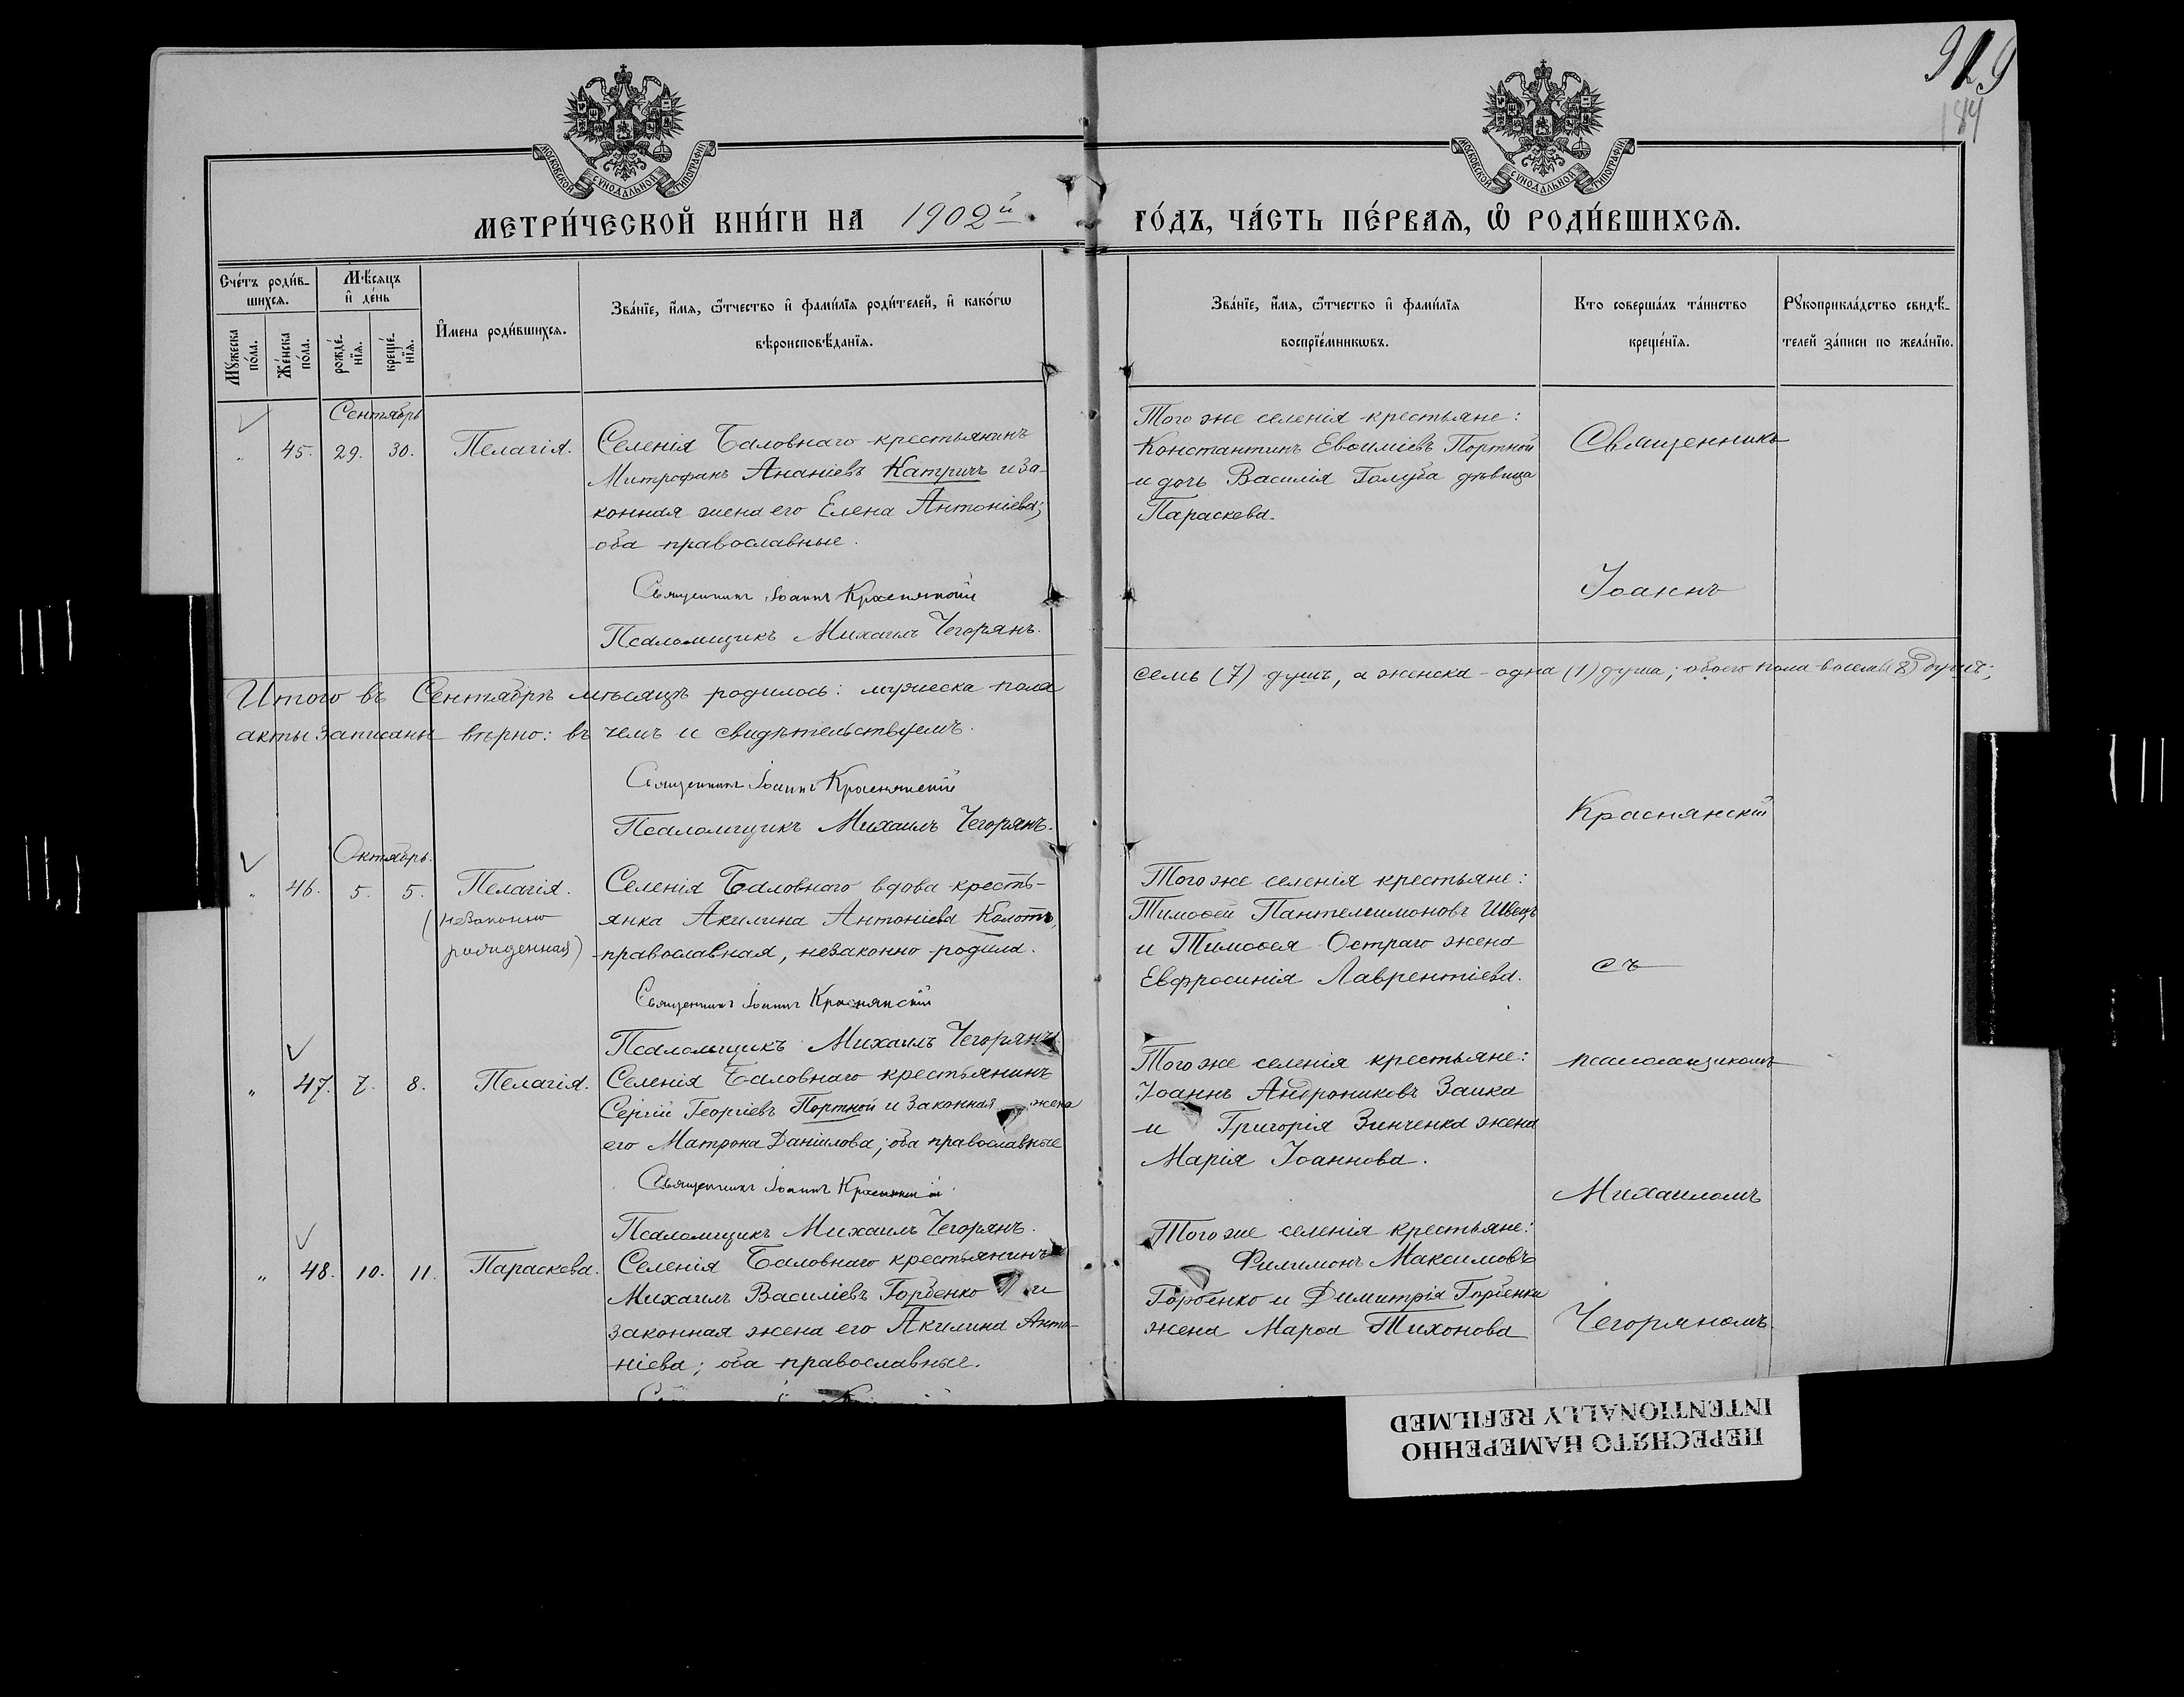 929
184
МОСКОВСКОЙ СУНОДАЛЬНОЙ ТИПОГРАФІИ
МОСКОВСКОЙ СУНОДАЛЬНОЙ ТИПОГРАФІИ
МЕТРИ́ЧЕСКОЙ КНИ́ГИ НА 1902й.
ГО́ДЪ, ЧА́СТЬ ПЕ́РВАЯ, Ѡ҆ РОДИ́ВШИХСЯ.
Сче́тъ роди́в-
шихся.
Мѣ́сяцъ
и҆ де́нь
Мꙋ́жеска
по́ла.
Же́нска
по́ла.
рожде́-
нїя.
креще́-
нїя.
И҆мена роди́вшихся.
Зва́нїе, и҆́мя, ѻ҆́тчество и҆ фами́лїя роди́телей, и҆ како́гѡ
вѣроисповѣ́данїя.
Зва́нїе, и҆́мя, ѻ҆́тчество и҆ фами́лїя
воспрїе́мникѡвъ.
Кто соверша́лъ та́инство
креще́нїя.
Рꙋкоприкла́дство свидѣ́-
телей за́писи по жела́нїю.
Сентябрь
„ 45. 29. 30. Пелагія.
Селенія Баловнаго крестьянинъ
Митрофанъ Ананіевъ Катричъ и за-
конная жена его Елена Антоніева;
оба православные.
Священникъ Іоаннъ Краснянскій
Псаломщикъ Михаилъ Чегорянъ.
Того же селенія крестьяне:
Константинъ Евѳиміевъ Портной
и дочь Василія Голуба дѣвица
Параскева.
Священникъ
Іоаннъ
Итого въ Сентябрѣ мѣсяцѣ родилось: мужеска пола
семь (7) душъ, а женска - одна (1) душа; обоего пола восемь (8) душъ;
акты записаны вѣрно: въ чемъ и свидѣтельствуемъ.
Священникъ Іоаннъ Краснянскій
Псаломщикъ Михаилъ Чегорянъ.
Краснянскій
Октябрь.
„ 46. 5. 5. Пелагія.
(незаконно
рожденная)
Селенія Баловнаго вдова кресть-
янка Акилина Антоніева Колотъ,
православная, незаконно родила.
Священникъ Іоаннъ Краснянскій
Псаломщикъ Михаилъ Чегорянъ
Того же селенія крестьяне:
Тимоѳей Пантелеимоновъ Швецъ
и Тимоѳея Остраго жена
Евфросинія Лаврентіева.
съ
„ 47. 7. 8. Пелагія.
Селенія Баловнаго крестьянинъ
Сергій Георгіевъ Портной и законная жена
его Матрона Даніилова; оба православные
Священникъ Іоаннъ Краснянскій
Псаломщикъ Михаилъ Чегорянъ.
Того же селенія крестьяне:
Іоаннъ Андрониковъ Заика
и Григорія Зинченка жена
Марія Іоаннова.
псаломщикомъ
Михаиломъ
„ 48. 10. 11. Параскева.
Селенія Баловнаго крестьянинъ
Михаилъ Василіевъ Горбенко и
законная жена его Акилина Анто-
ніева; оба православные.
Того же селенія крестьяне:
Филимонъ Максимовъ
Горбенко и Димитрія Горбенка
жена Марѳа Тихонова
Чегоряномъ.
ПЕРЕСНЯТО НАМЕРЕННО
INTENTIONALLY REFILMED